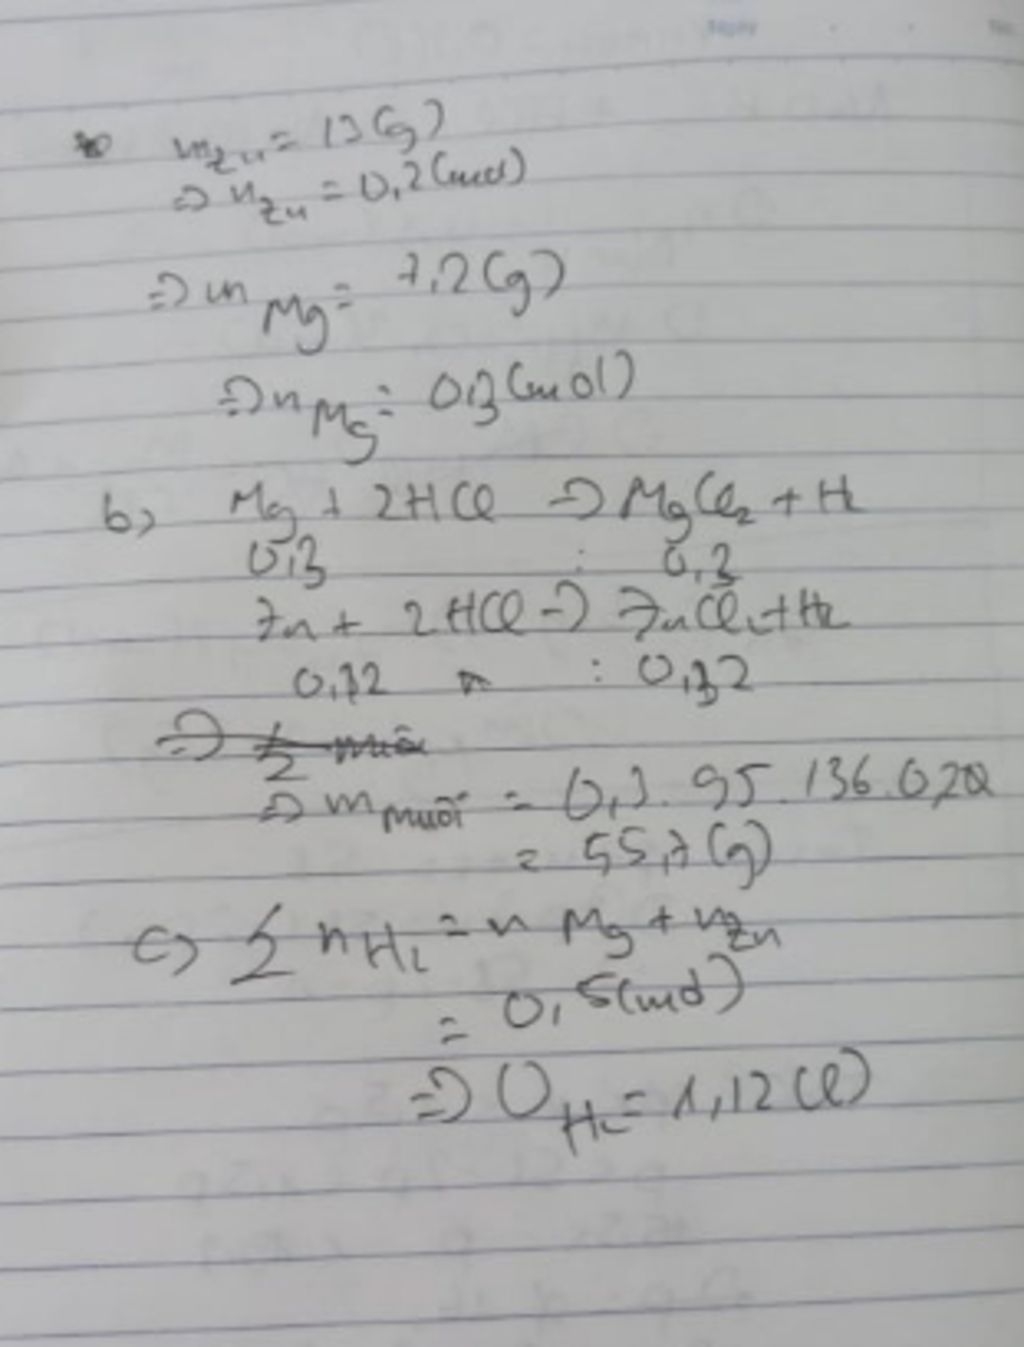 m Zn = 13 (g)
=> n Zn = 0,2 (mol)
=> m Mg = 7,2 (g)
=> n Mg = 0,3 (mol)
b) Mg + 2HCl => MgCl2 + H2
0,3 : 0,3
Zn + 2HCl => ZnCl2 + H2
0,2 : 0,2
=> m muối = 0,3. 95. 136. 0,2
= 55,7 (g)
c) Σ nH2 = n Mg + n Zn
= 0,5 (mol)
=> VH2 = 1,12 (l)